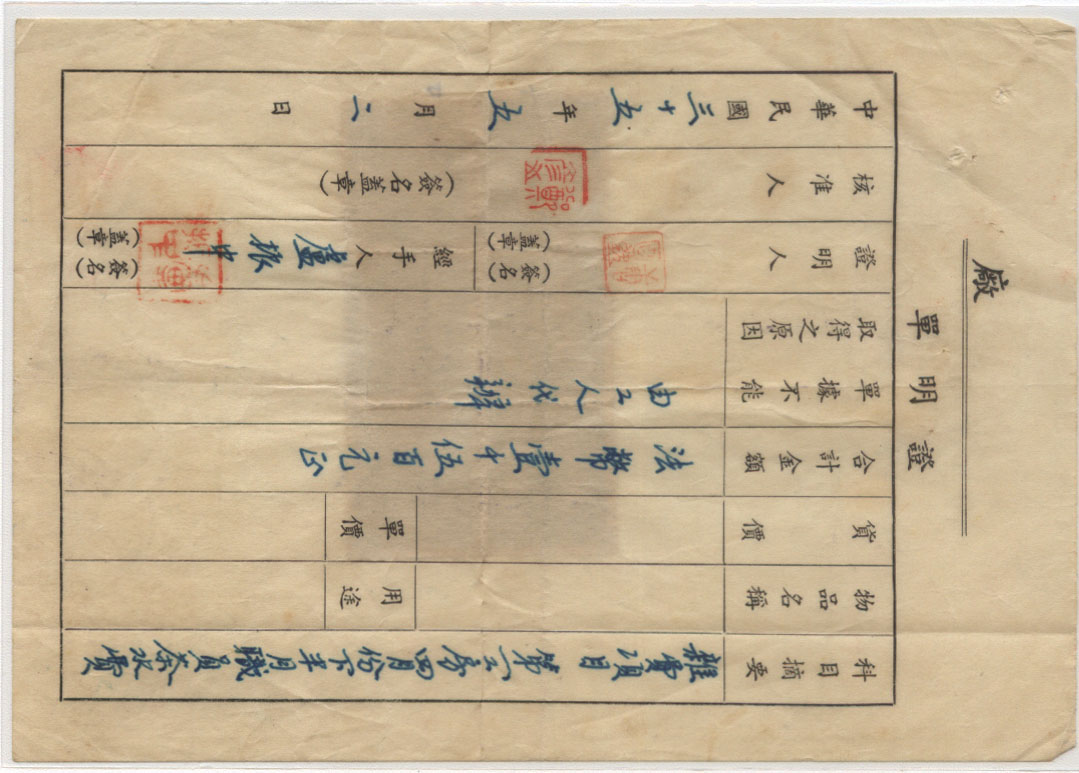 廠
證明單
科目摘要
雜費項目
第工房四月份下半月職員茶水費
物品名稱
用途
貨價
單價
合計金額
法幣壹千伍百元正
單據不能取得之原因
由工人代辦
證明人
(簽名)
(蓋章)
經手人
盧振中
(簽名)
(蓋章)
核准人
(簽名蓋章)
中華民國三十五年五月二日